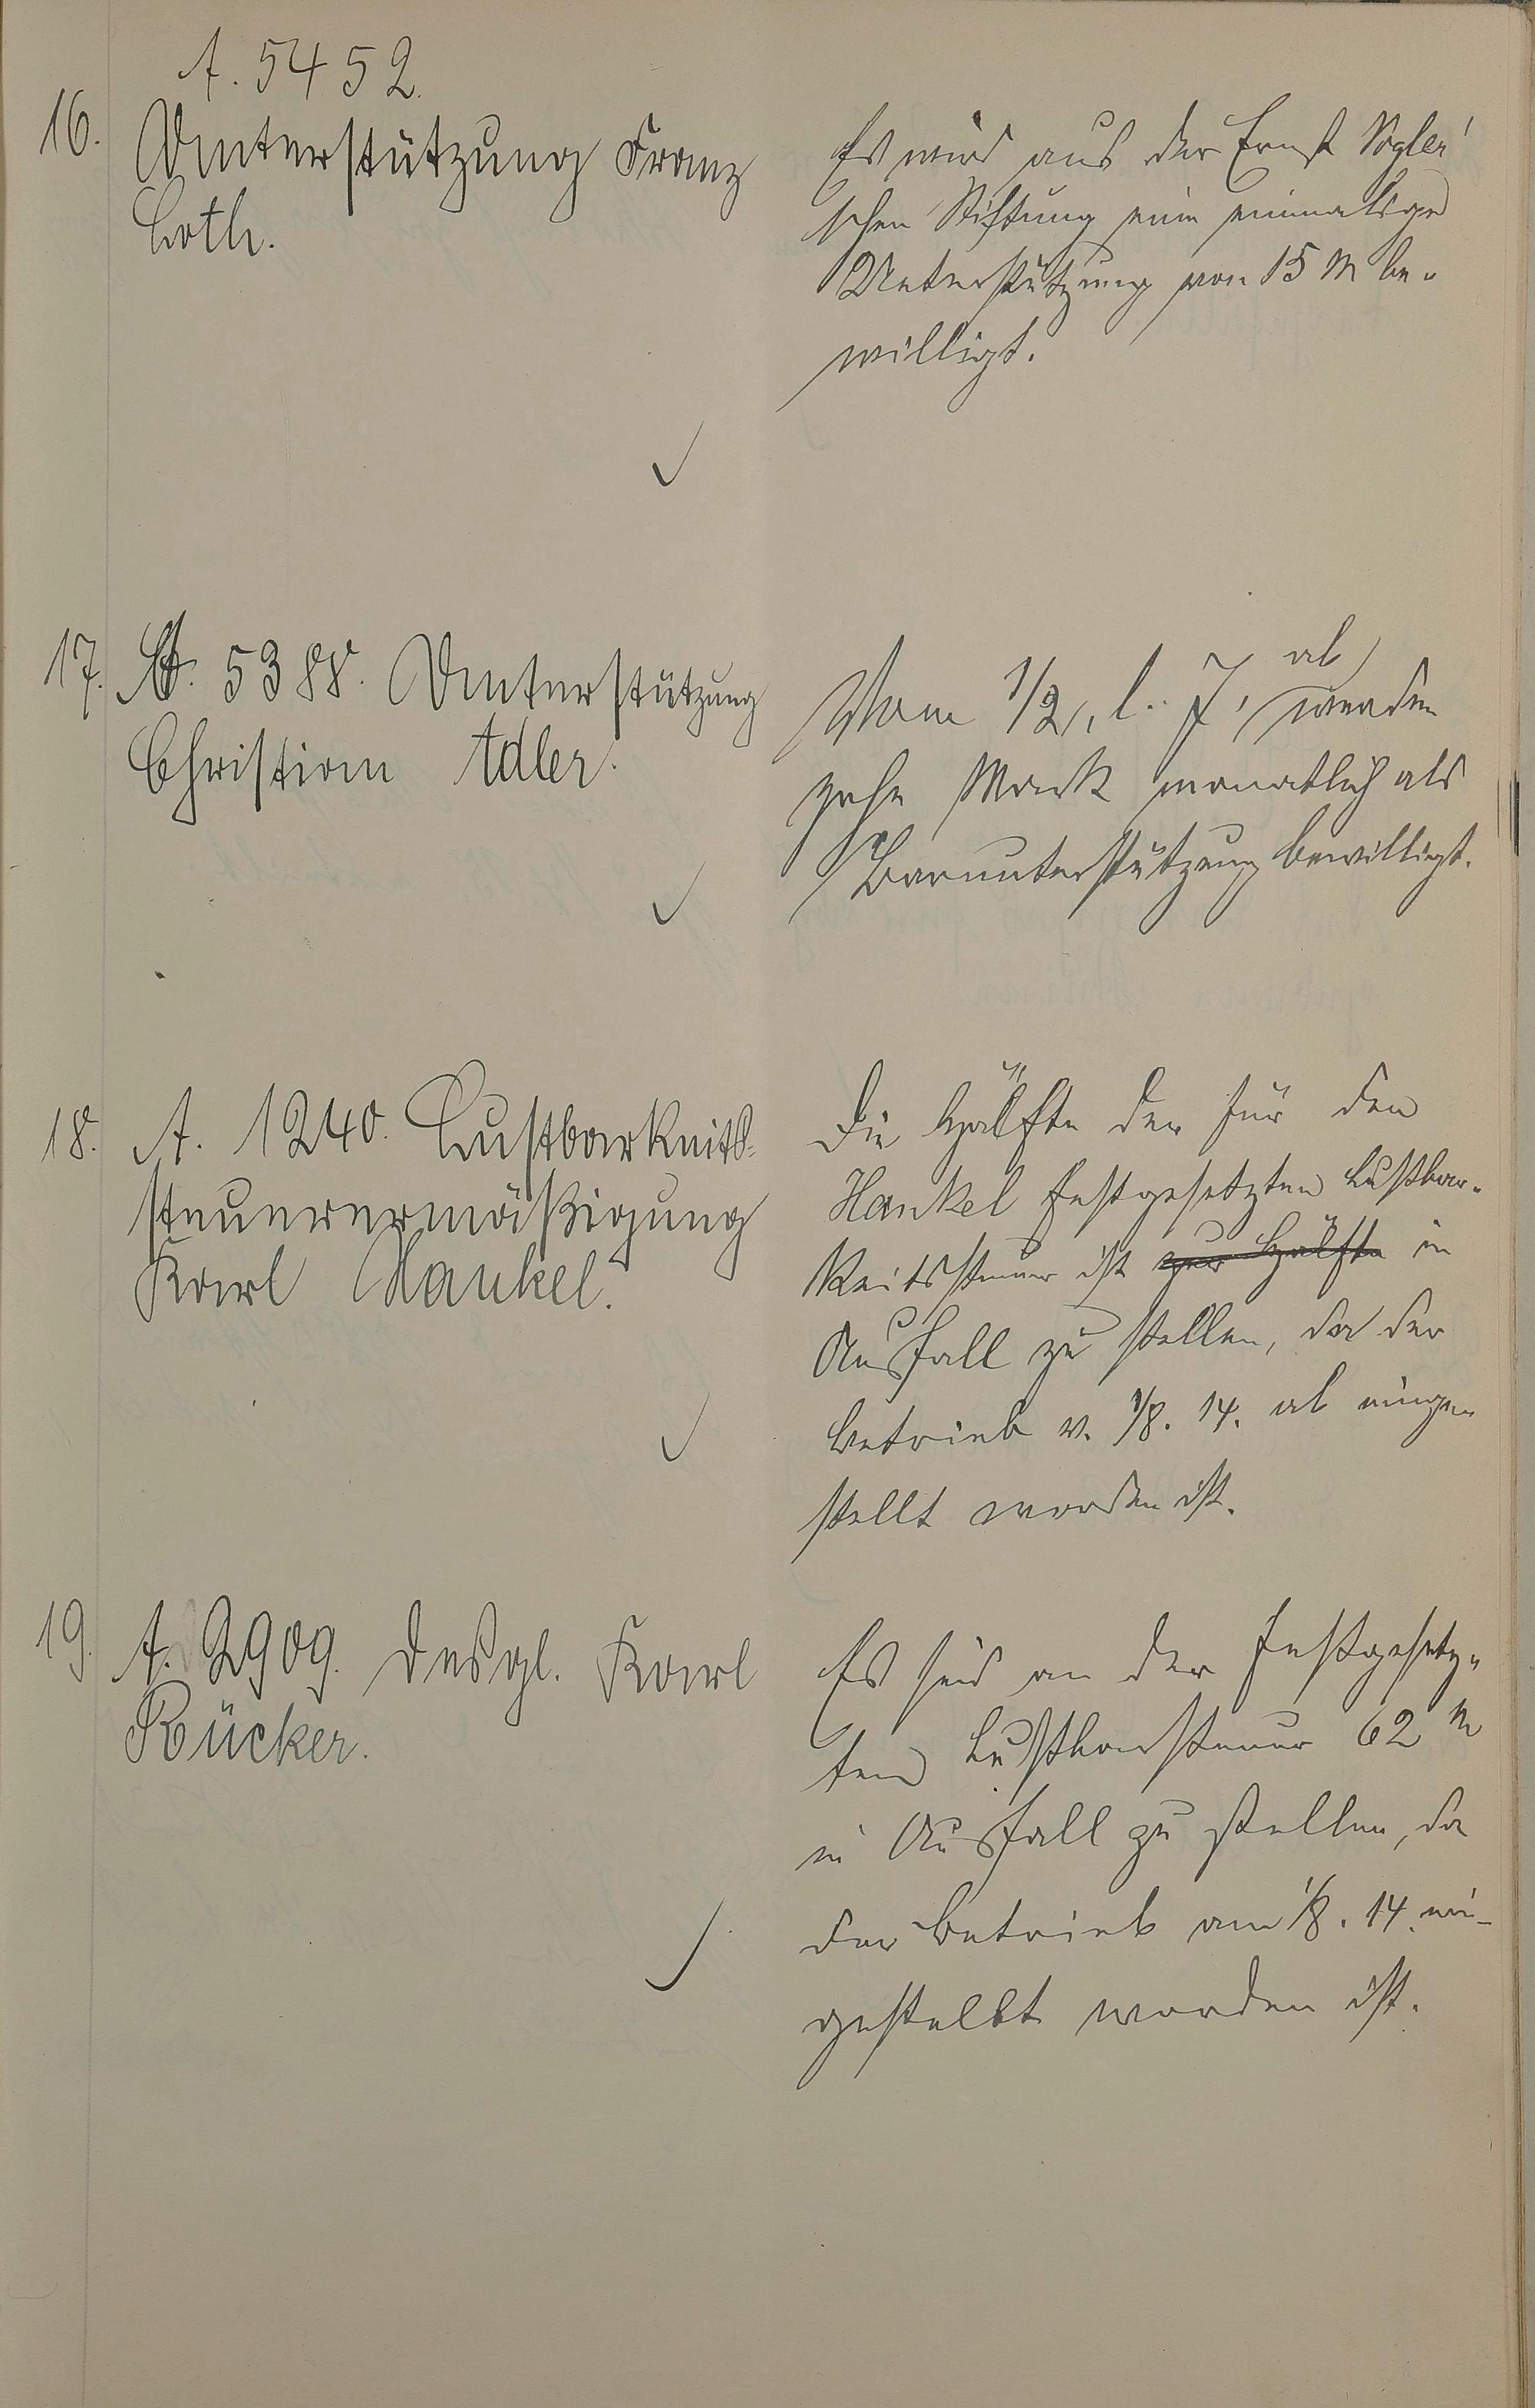 A. 5452.
16. Unterstützung Franz
Loth.
Es wird aus der Ernst Vogler'
schen Stiftung eine einmalige
Unterstützung von 15 M be-
willigt.
17. A. 5388. Unterstützung
Christian Adler.
Vom 1/2. l. J. ab werden
zehn Mark monatlich als
Barunterstützung bewilligt.
18. A. 1240. Lustbarkeits-
steuerermäßigung
Karl Hankel.
Die Hälfte der für den
Hankel festgesetzten Lustbar-
keitssteuer ist zur Hälfte in
Ausfall zu stellen, da der
Betrieb v. 1/8. 14. ab einge-
stellt worden ist.
19. A. 2909. Desgl. Karl
Rücker.
Es sind an der festgesetz-
ten Lustbarsteuer 62 M
in Ausfall zu stellen, da
der Betrieb am 1/8. 14. ein-
gestellt worden ist.